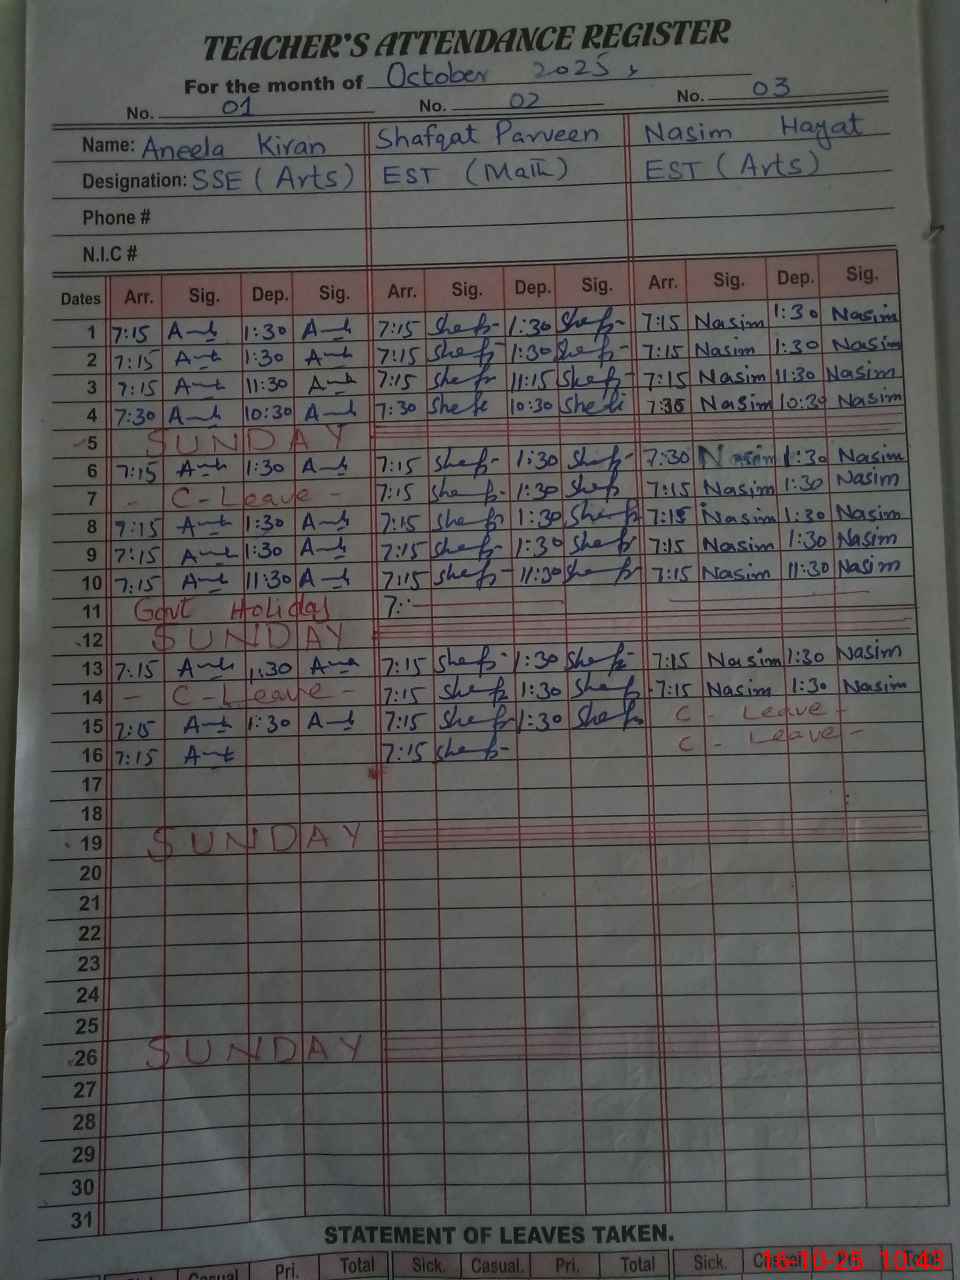 TEACHER'S ATTENDANCE REGISTER
For the month of October 2025
No. 01 No. 02 No. 03
Name: Aneela Kiran Shafqat Parveen Nasim Hayat
Designation: SSE (Arts) EST (Math) EST (Arts)
Phone #
N.I.C #
Dates Arr. Sig. Dep. Sig. Arr. Sig. Dep. Sig. Arr. Sig. Dep. Sig.
1 7:15 1:30 7:15 1:30 7:15 Nasim 1:30 Nasim
2 7:15 1:30 7:15 1:30 7:15 Nasim 1:30 Nasim
3 7:15 11:30 7:15 11:15 7:15 Nasim 11:30 Nasim
4 7:30 10:30 7:30 10:30 7:30 Nasim 10:30 Nasim
5 SUNDAY
6 7:15 1:30 7:15 1:30 7:30 Nasim 1:30 Nasim
7 - C-Leave - 7:15 1:30 7:15 Nasim 1:30 Nasim
8 7:15 1:30 7:15 1:30 7:15 Nasim 1:30 Nasim
9 7:15 1:30 7:15 1:30 7:15 Nasim 1:30 Nasim
10 7:15 11:30 7:15 11:30 7:15 Nasim 11:30 Nasim
11 Govt Holiday 7:
12 SUNDAY
13 7:15 1:30 7:15 1:30 7:15 Nasim 1:30 Nasim
14 - C-Leave - 7:15 1:30 7:15 Nasim 1:30 Nasim
15 7:15 1:30 7:15 1:30 C - Leave -
16 7:15 7:15 C - Leave -
17
18
19 SUNDAY
20
21
22
23
24
25
26 SUNDAY
27
28
29
30
31
STATEMENT OF LEAVES TAKEN.
Sick. Casual Pri. Total Sick. Casual. Pri. Total Sick. Casual Pri. Total
16-10-25 10:43